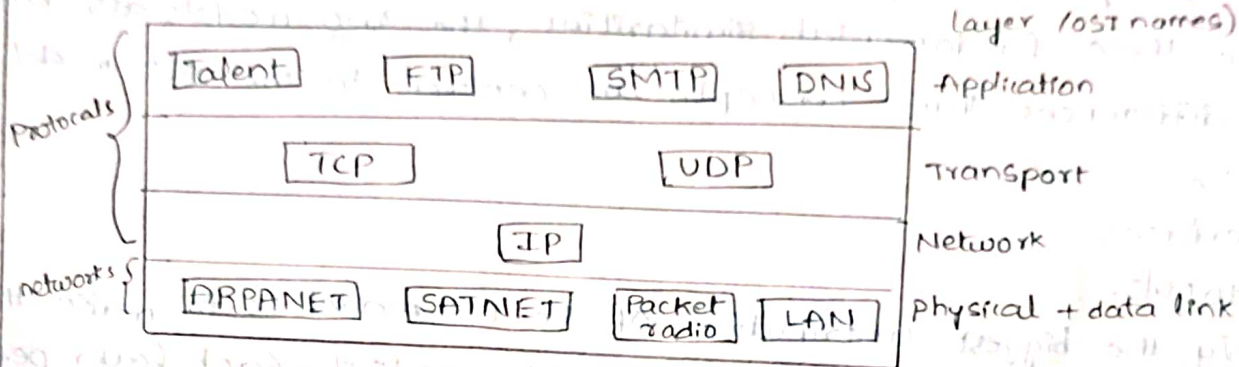 layer lost names)
Talent FTP SMTP DNS Application
Protocals
TCP UDP Transport
IP Network
networks
ARPANET SATNET Packet radio LAN physical + data link